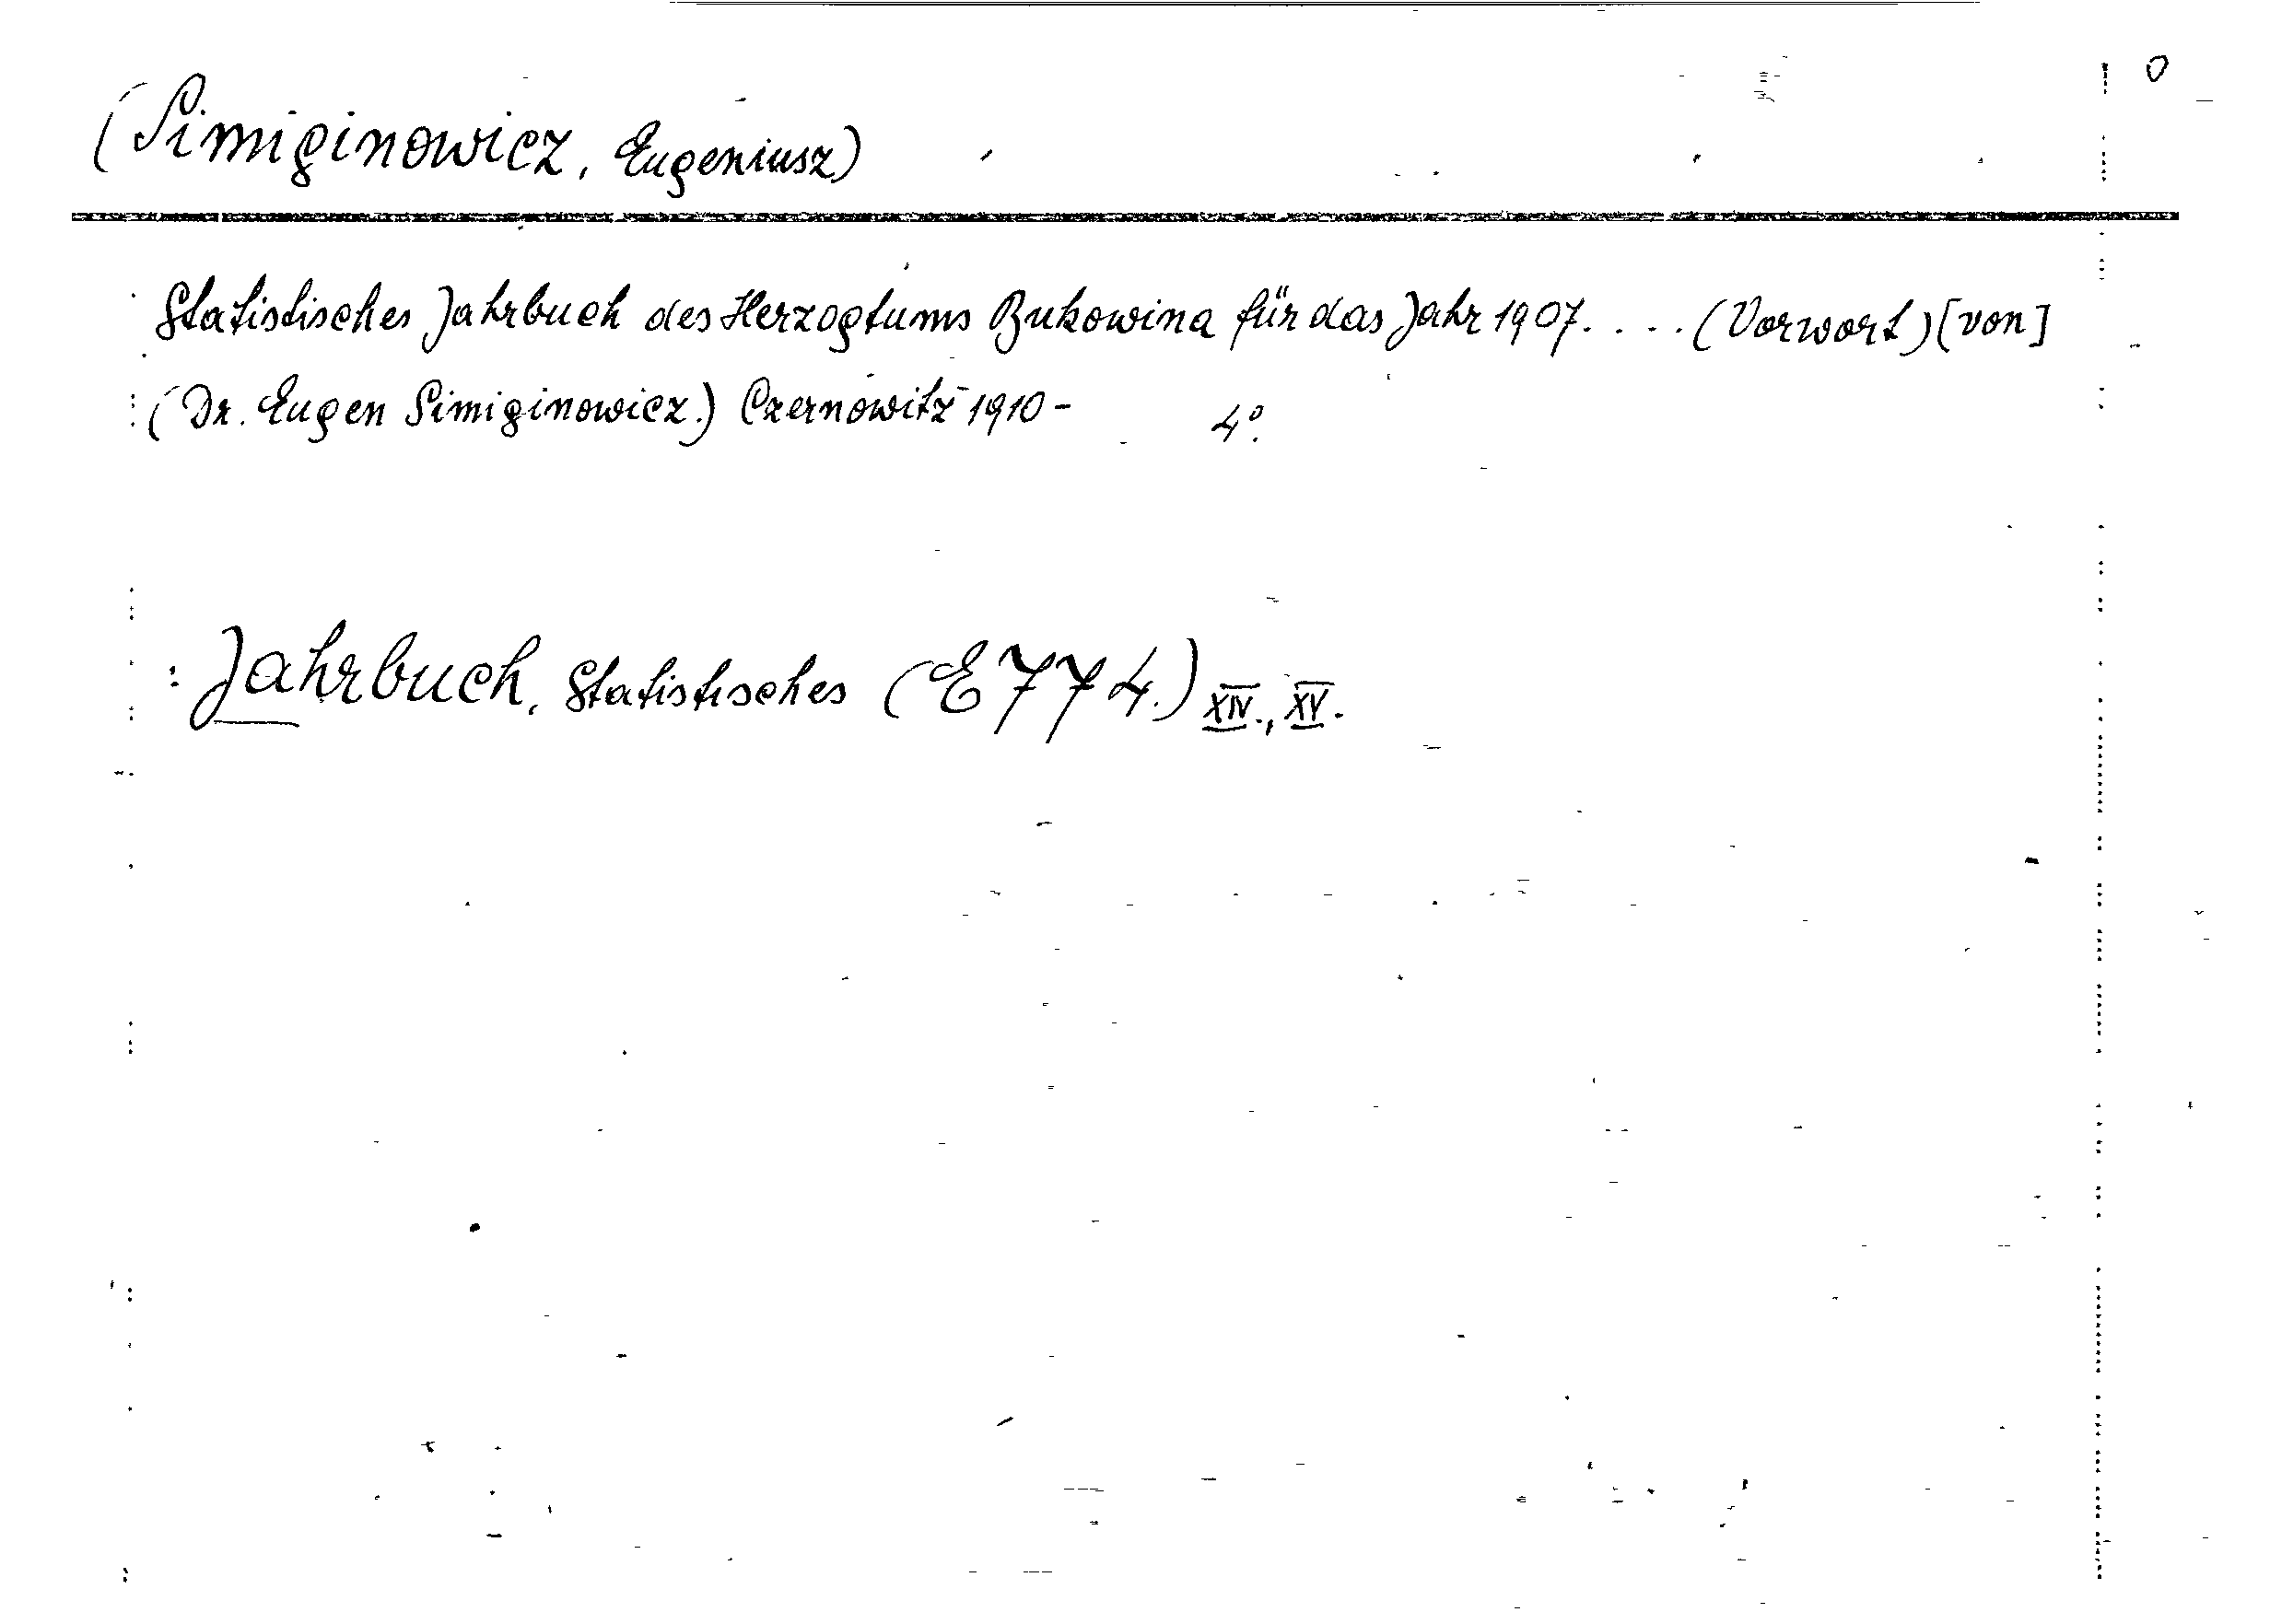 0
(Simiginowicz, Eugeniusz)
Statistisches Jahrbuch des Herzogtums Bukowina für das Jahr 1907. . . . (Vorwort) [von]
(Dr. Eugen Simiginowicz.) Czernowitz 1910- 4°.
: Jahrbuch, Statistisches (E774.) XIV., XV.